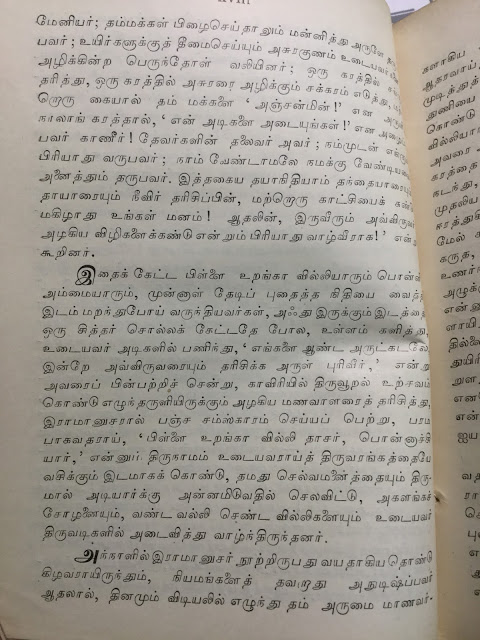 xviii
மேனியர்; தம்மக்கள் பிழைசெய்தாலும் மன்னித்து அருளே
பவர்; உயிர்களுக்குத் தீமைசெய்யும் அசுரகுணம் உடையவரை
அழிக்கின்ற பெருந்தோள் வலியினர்; ஒரு கரத்தில்
தரித்து, ஒரு கரத்தில் அசுரரை அழிக்கும் சக்கரம் எடுத்து,
றொரு கையால் தம் மக்களை ‘அஞ்சன்மின்!’ என
நாலாங் கரத்தால், ‘என் அடிகளை அடையுங்கள்!’ என
பவர் காணீர்! தேவர்களின் தலைவர் அவர்; நம்முடன்
பிரியாது வருபவர்; நாம் வேண்டாமலே நமக்கு வேண்டிய
அனைத்தும் தருபவர். இத்தகைய தயாநிதியாம் தந்தையாரையும்
தாயாரையும் நீவிர் தரிசிப்பின், மற்றொரு காட்சியைக்
மகிழாது உங்கள் மனம்! ஆதலின், இருவீரும் அவ்விருவர்
அழகிய விழிகளைக்கண்டு என்றும் பிரியாது வாழ்வீராக!’
கூறினர்.
இதைக் கேட்ட பிள்ளை உறங்கா வில்லியாரும் பொன்
அம்மையாரும், முன்னாள் தேடிப் புதைத்த நிதியை வைத்த
இடம் மறந்துபோய் வருந்தியவர்கள், அஃது இருக்கும் இடத்தை
ஒரு சித்தர் சொல்லக் கேட்டதே போல, உள்ளம் களித்து,
உடையவர் அடிகளில் பணிந்து, ‘எங்களை ஆண்ட அருட்கடலே,
இன்றே அவ்விருவரையும் தரிசிக்க அருள் புரிவீர்,’ என்று
அவரைப் பின்பற்றிச் சென்று, காவிரியில் திருவூறல் உற்சவம்
கொண்டு எழுந்தருளியிருக்கும் அழகிய மணவாளரைத் தரிசித்து,
இராமானுசரால் பஞ்ச சம்ஸ்காரம் செய்யப் பெற்று, பரம
பாகவதராய், ‘பிள்ளை உறங்கா வில்லி தாசர், பொன்னாச்சி
யார்,’ என்னும் திருநாமம் உடையவராய்த் திருவரங்கத்தையே
வசிக்கும் இடமாகக் கொண்டு, தமது செல்வமனைத்தையும் திரு-
மால் அடியார்க்கு அன்னமிடுவதில் செலவிட்டு, அகளங்கச்
சோழனையும், வண்ட வல்லி செண்ட வில்லிகளையும் உடையவர்
திருவடிகளில் அடைவித்து வாழ்ந்திருந்தனர்.
அந்நாளில் இராமானுசர் நூற்றிருபது வயதாகிய தொண்டு
கிழவராயிருந்தும், நியமங்களைத் தவறாது அநுடிஷ்ப்பவர்
ஆதலால், தினமும் விடியலில் எழுந்து தம் அருமை மாணவர்-